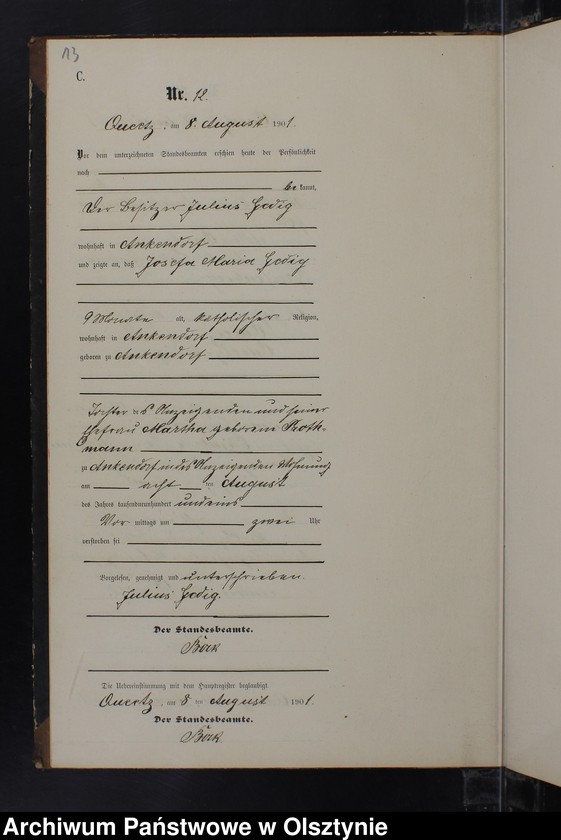 13
C.
Nr. 12.
Queetz, am 8. August 1901.
Vor dem unterzeichneten Standesbeamten erschien heute der Persönlichkeit
nach
bekannt,
Der Besitzer Julius
wohnhaft in Ankendorf
und zeigte an, daß Josefa Maria
9 Monate alt, katholischer Religion,
wohnhaft in Ankendorf
geboren zu Ankendorf
Tochter des Anzeigenden und seiner
Ehefrau Martha geborene Groth-
mann
zu Ankendorf in des Anzeigenden Wohnung
am acht ten August
des Jahres tausendneunhundert und eins
Vor mittags um zwei Uhr
verstorben sei
Vorgelesen, genehmigt und unterschrieben.
Julius
Der Standesbeamte.
Böck
Die Uebereinstimmung mit dem Hauptregister beglaubigt.
Queetz, am 8 ten August 1901.
Der Standesbeamte.
Böck
Archiwum Państwowe w Olsztynie